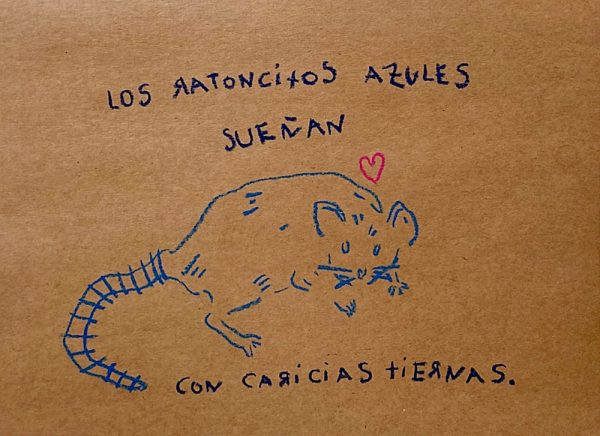 LOS RATONCITOS AZULES
SUEÑAN
CON CARICIAS TIERNAS.